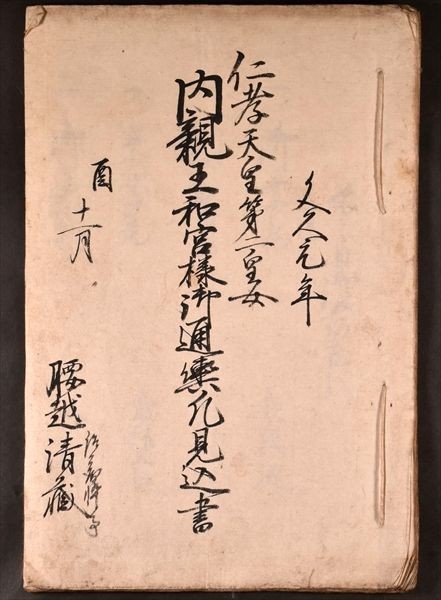 文久元年
仁孝天皇第二皇女
内親王和宮様御通輿凡見込書
酉
十一月
腰越清蔵